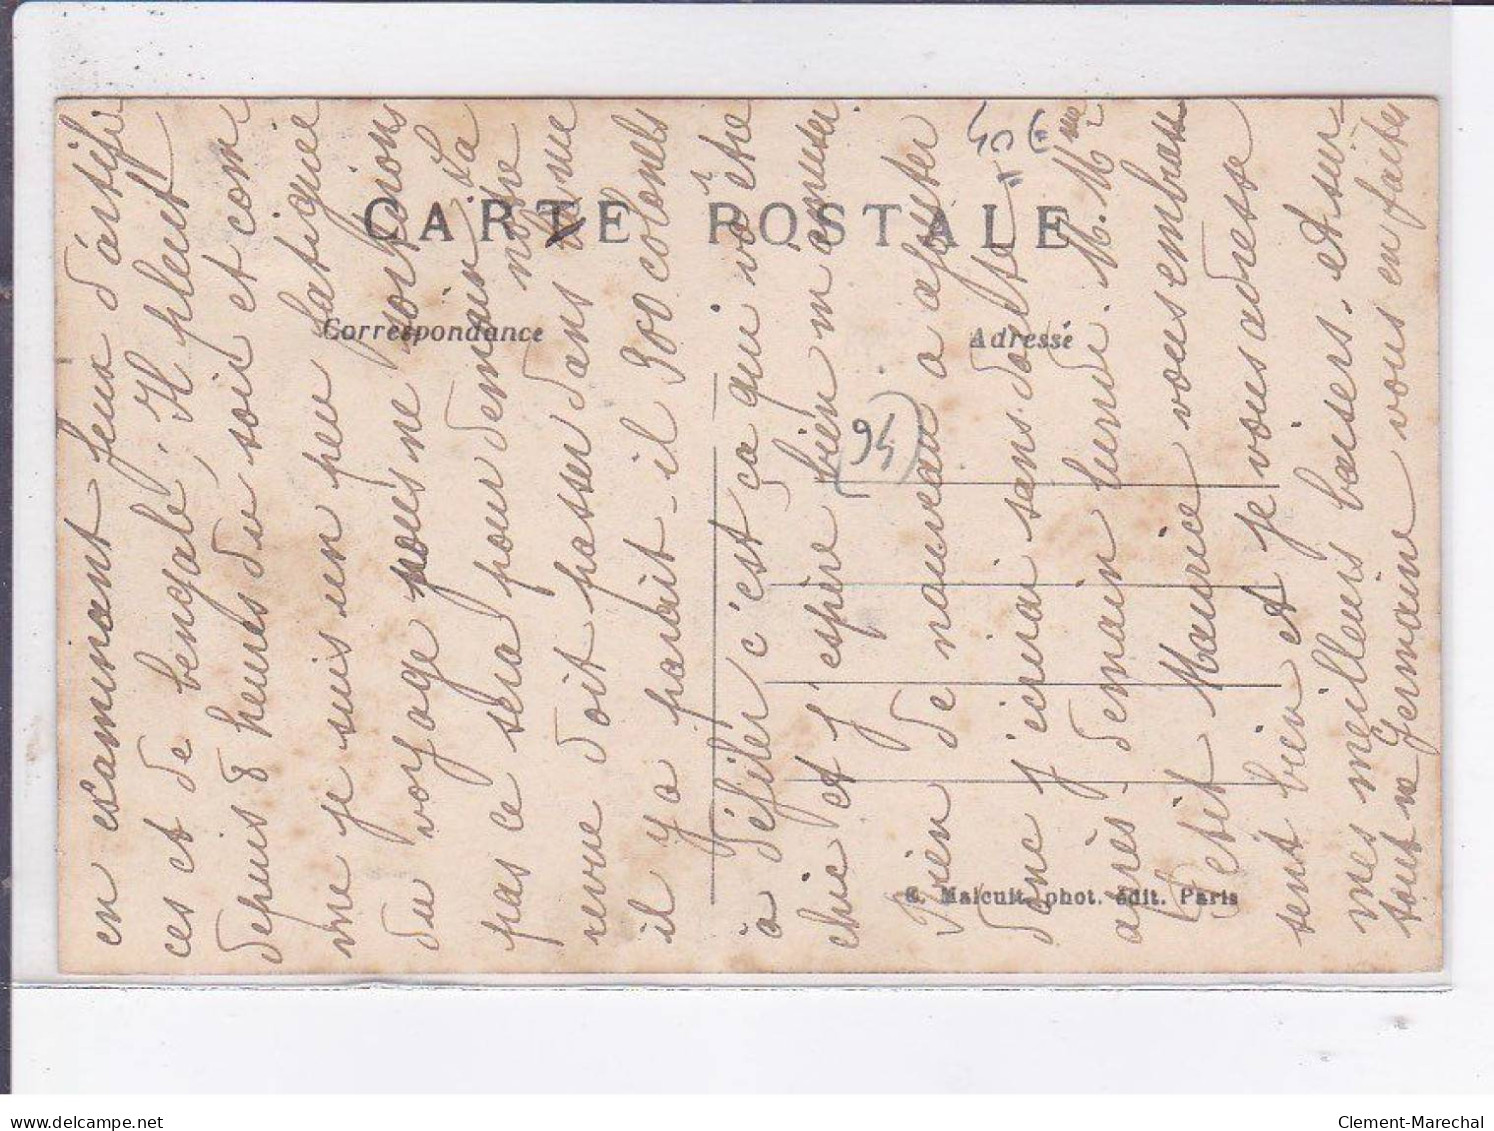 CARTE POSTALE
Correspondance
Adresse
40€
94
en examinant feux d'artifi
ces et de bengale; Il pleut
depuis 8 heures du soir et com
me je suis un peu fatiguée
du voyage nous ne sortirons
pas ce sera pour demain La
revue doit passer dans notre rue
il y a paraît-il 300 colonels
à défiler c'est ça qui va être
chic et j'espère bien m'amuser
Rien de nouveau a ajouter
donc j'écrirai sans doute
après-demain lundi. M. Mme
et Maurice vous embrassent
bien et je vous adresse
mes meilleurs baisers. et sur
tout ne vous en faites
Germaine
C. Malcuit, phot. édit. Paris
delcampe.net
Clement-Marechal